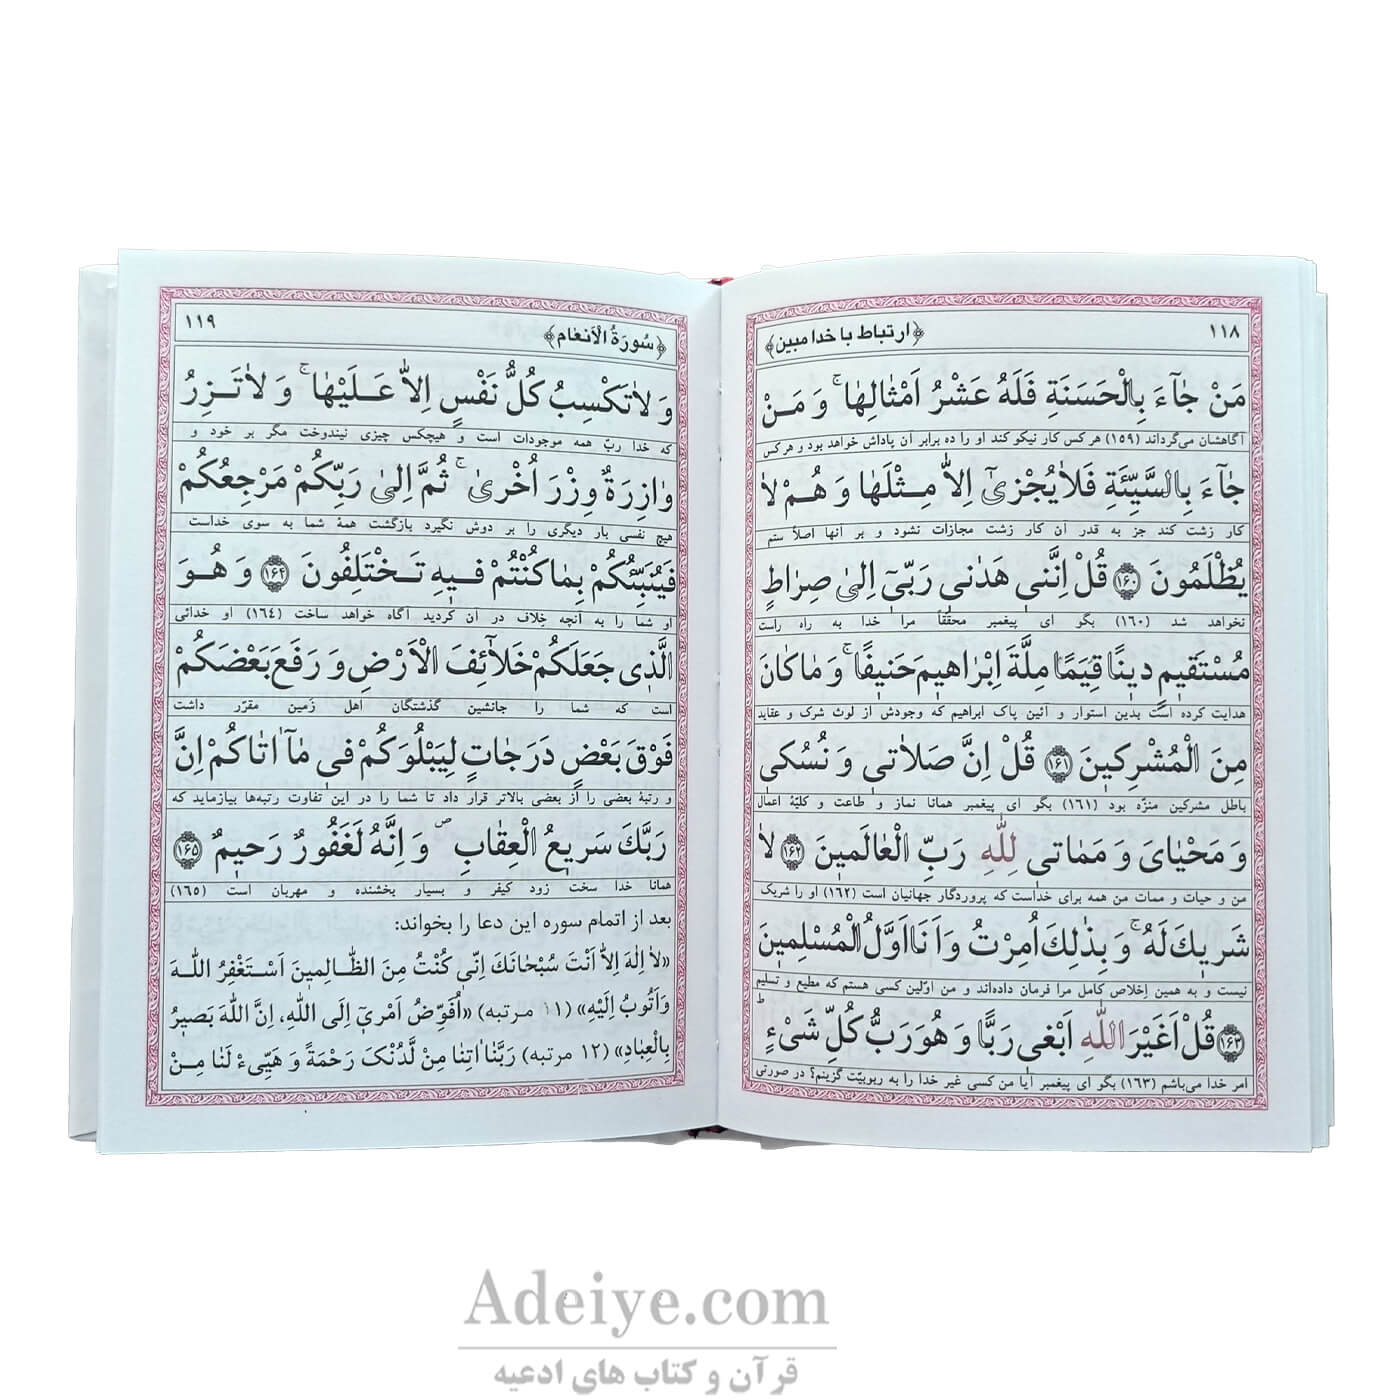 ۱۱۸
﴿ارتباط با خدا مبین﴾
مَنْ جٰاۤءَ بِالْحَسَنَةِ فَلَهُ عَشْرُ اَمْثٰالِهٰا ۚ وَ مَـنْ
آگاهشان می‌گرداند (۱۵۹) هر کس کار نیکو کند او را ده برابر آن پاداش خواهد بود و هر کس
جٰاۤءَ بِالسَّيِّئَةِ فَلاٰيُجْزىٰۤ اِلاّٰ مِـثْلَهٰا وَ هُـمْ لاٰ
کار زشت کند جز به قدر آن کار زشت مجازات نشود و بر آنها اصلاً ستم
يُظْلَمُونَ ﴿۱۶۰﴾ قُلْ اِنَّنى هَدٰنى رَبّىۤ اِلىٰ صِرٰاطٍ
نخواهد شد (۱۶۰) بگو ای پیغمبر محقّقاً مرا خدا به راه راست
مُسْتَقيمٍ دينًا قِيَمًا مِلَّةَ اِبْرٰاهيمَ حَنيفًا ۚ وَ مٰا كٰانَ
هدایت کرده است بدین استوار و آئین پاک ابراهیم که وجودش از لوث شرک و عقاید
مِنَ الْمُشْرِكينَ ﴿۱۶۱﴾ قُلْ اِنَّ صَلاٰتى وَ نُسُكى
باطل مشرکین منزّه بود (۱۶۱) بگو ای پیغمبر همانا نماز و طاعت و کلیّهٔ اعمال
وَ مَحْيٰاىَ وَ مَمٰاتى لِلّٰهِ رَبِّ الْعٰالَمينَ ﴿۱۶۲﴾ لاٰ
من و حیات و ممات من همه برای خداست که پروردگار جهانیان است (۱۶۲) او را شریک
شَريكَ لَهُ ۚ وَ بِذٰلِكَ اُمِرْتُ وَ اَنَا اَوَّلُ الْمُسْلِمينَ
نیست و به همین اخلاص کامل مرا فرمان داده‌اند و من اوّلین کسی هستم که مطیع و تسلیم
﴿۱۶۳﴾ قُلْ اَغَيْرَ اللّٰهِ اَبْغى رَبًّا وَ هُوَ رَبُّ كُلِّ شَىْءٍ ؕ
امر خدا می‌باشم (۱۶۳) بگو ای پیغمبر آیا من کسی غیر خدا را به ربوبیّت گزینم؟ در صورتی
۱۱۹
﴿سُورَةُ الْاَنعٰام﴾
وَ لاٰتَكْسِبُ كُلُّ نَفْسٍ اِلاّٰ عَـلَيْهٰا ۚ وَ لاٰتَـزِرُ
که خدا ربّ همه موجودات است و هیچکس چیزی نیندوخت مگر بر خود و
وٰازِرَةٌ وِزْرَ اُخْرىٰ ۚ ثُمَّ اِلىٰ رَبِّكُمْ مَرْجِعُكُمْ
هیچ نفسی بار دیگری را بر دوش نگیرد بازگشت همهٔ شما به سوی خداست
فَيُنَبِّئُكُمْ بِمٰا كُنْتُمْ فـيهِ تَـخْتَلِفُونَ ﴿۱۶۴﴾ وَ هُـوَ
او شما را به آنچه خلاف در آن کردید آگاه خواهد ساخت (۱۶۴) او خدائی
الَّذى جَعَلَكُمْ خَلاٰۤئِفَ الْاَرْضِ وَ رَفَعَ بَعْضَكُمْ
است که شما را جانشین گذشتگان اهل زمین مقرّر داشت
فَوْقَ بَعْضٍ دَرَجٰاتٍ لِيَبْلُوَكُمْ فى مٰاۤ اٰتٰاكُمْ اِنَّ
و رتبهٔ بعضی را از بعضی بالاتر قرار داد تا شما را در این تفاوت رتبه‌ها بیازماید که
رَبَّكَ سَريعُ الْعِقٰابِ ۖ وَ اِنَّهُ لَغَفُورٌ رَحيمٌ ﴿۱۶۵﴾
همانا خدا سخت زود کیفر و بسیار بخشنده و مهربان است (۱۶۵)
بعد از اتمام سوره این دعا را بخواند:
«لاٰ اِلٰهَ اِلاّٰ اَنْتَ سُبْحٰانَكَ اِنّى كُنْتُ مِنَ الظّٰـالِمينَ اَسْـتَغْفِرُ اللّٰـهَ
وَ اَتُوبُ اِلَيْهِ» (۱۱ مرتبه) «اُفَوِّضُ اَمْرىۤ اِلَى اللّٰهِ، اِنَّ اللّٰهَ بَصيرٌ
بِالْعِبٰادِ» (۱۲ مرتبه) رَبَّنٰا اٰتِنٰا مِنْ لَدُنْکَ رَحْمَةً وَ هَيِّىءْ لَنٰا مِـنْ
Adeiye.com
قرآن و کتاب های ادعیه